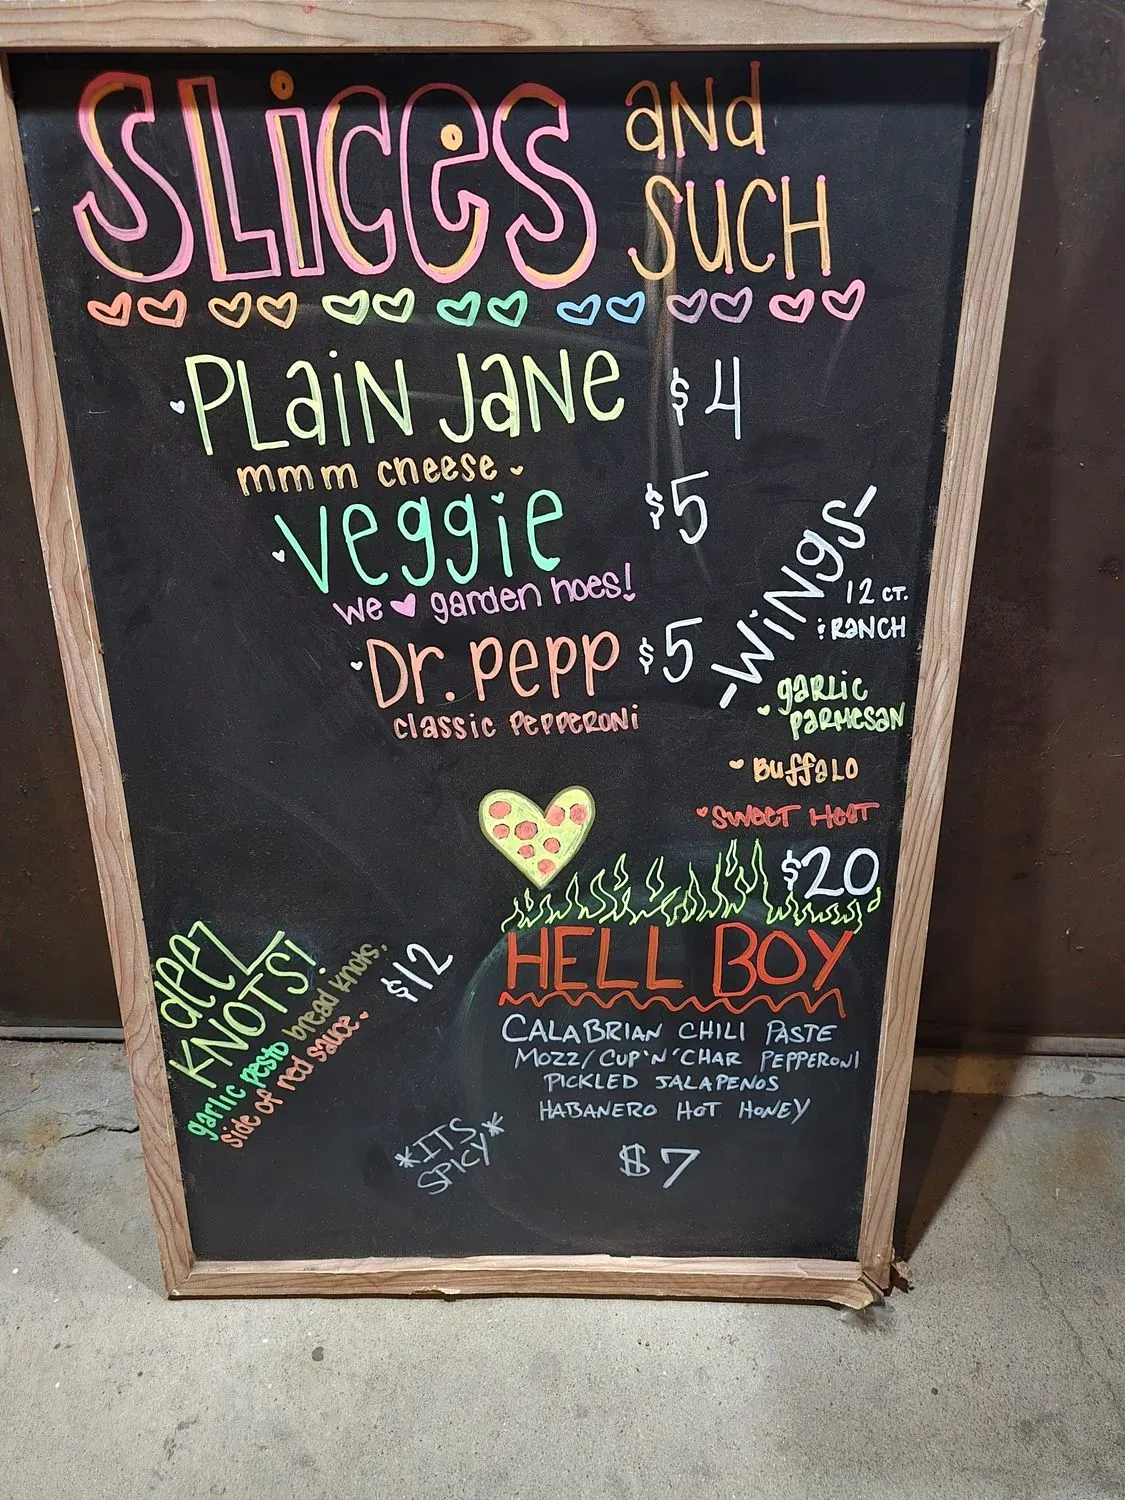 SLiCeS aNd
SUCH
PLaiN JaNe $4
mmm cheese
Veggie $5
we garden hoes!
Dr. Pepp $5
classic PePPeRoNi
-WiNgS-
12 CT.
& RaNCH
gaRLic
PaRMesaN
BuffaLO
SWEET HEAT
$20
deez
KNOTS!
garlic pesto bread knots,
side of red sauce
$12
HELL BOY
CALABRIAN CHILI PASTE
MOZZ/CUP'N'CHAR PEPPERONI
PICKLED JALAPENOS
HABANERO HOT HONEY
*ITS
SPICY*
$7